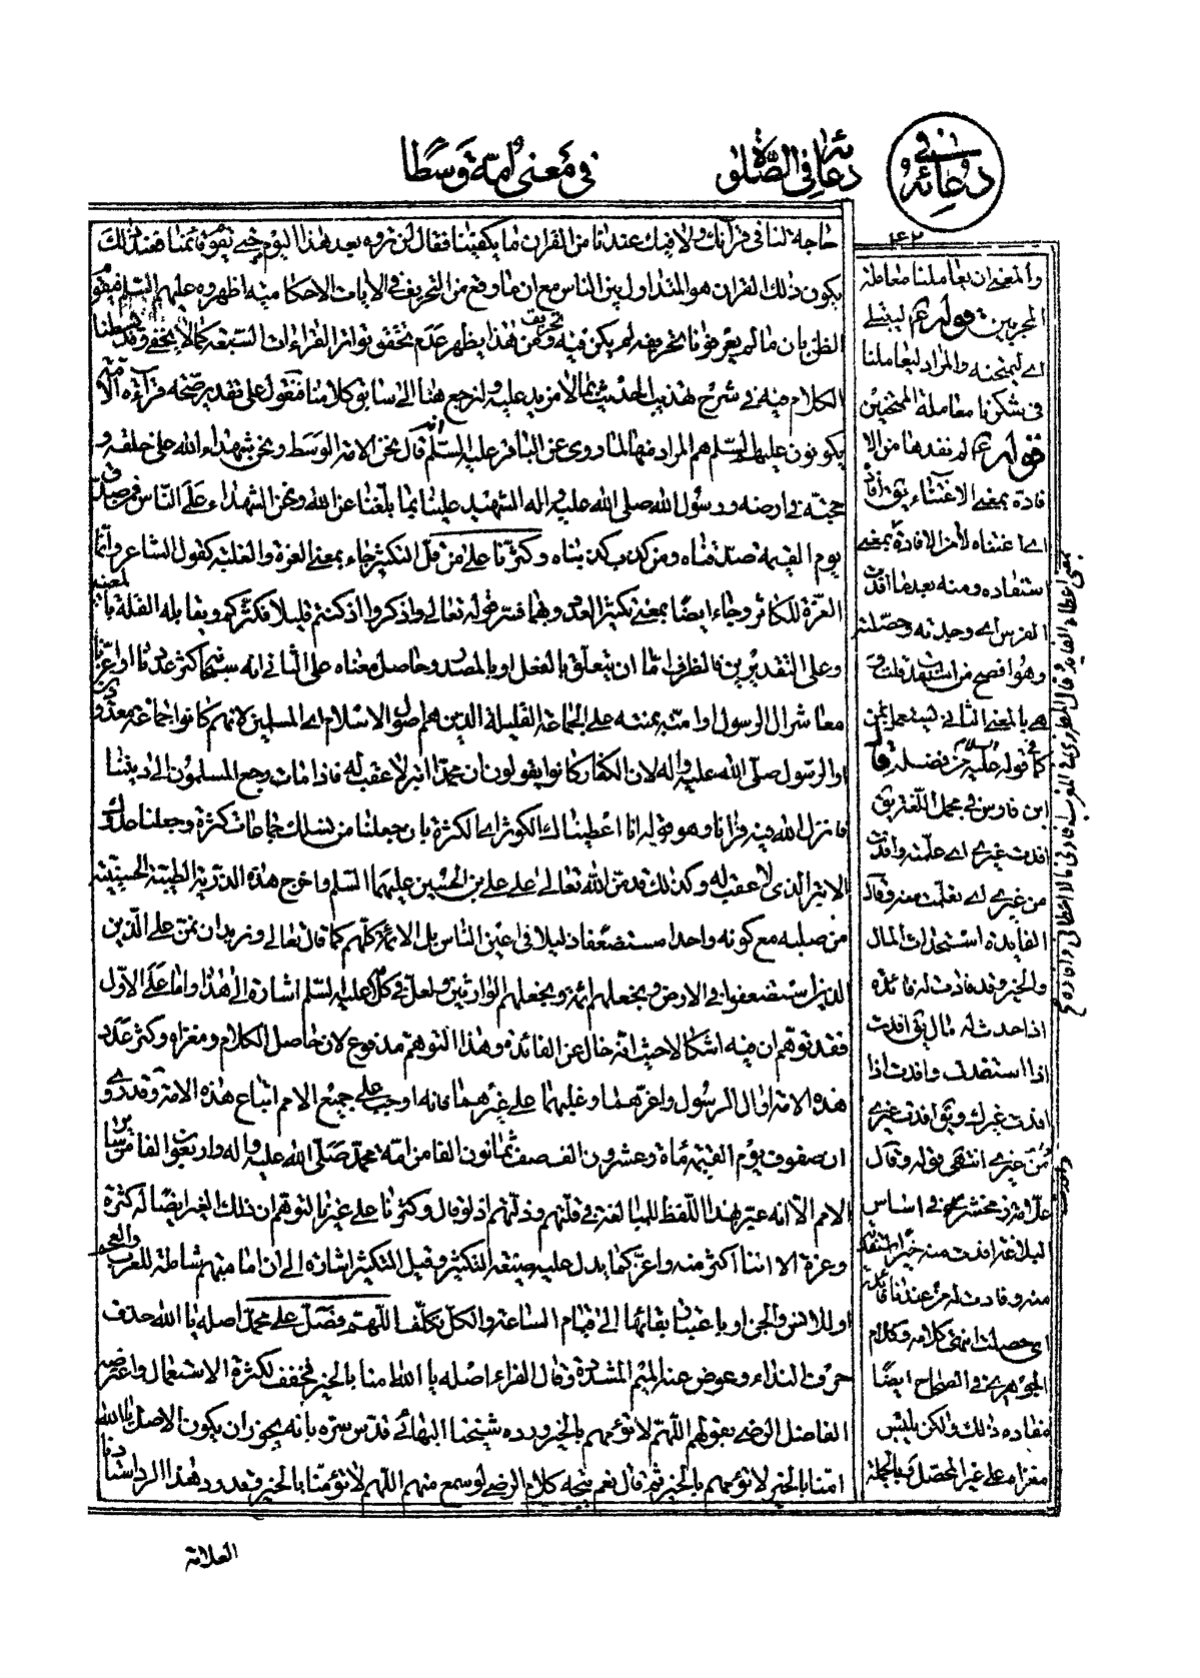 دعائه في الصلوة
في معنى امة وسطا
دعائه
٤٢
حاجة لنا في قرآنك ولا فيك عندنا من القران ما يكفينا فقال لن تروه بعد هذا اليوم حتى يقوم قائمنا فعند ذلك
يكون ذلك القران هو المتداول بين الناس مع ان ما وقع من التحريف في الايات الاحكامية اظهروه عليهم السلم فيقو
الظن بان ما لم يعرفونا تحريفه لم يكن فيه تحريف ومن هذا يظهر عدم تحقق تواتر القراءات السبعة كما لا يخفى وقد بسطنا
الكلام فيه في شرح تهذيب الحديث بما لا مزيد عليه ولنرجع هنا الى سابق كلامنا فنقول على تقدير صحة قراءة الامة
يكونون عليهم السلم هم المراد منها لما روى عن الباقر عليه السلم انه قال نحن الامة الوسط ونحن شهداء الله على خلقه و
حجته في ارضه ورسول الله صلى الله عليه واله الشهيد علينا بما بلغنا عن الله ونحن الشهداء على الناس فمن صدق
يوم القيمة صدقناه ومن كذب كذبناه وكثرنا على من قل التكثير جاء بمعنى العزة والغلبة كقول الشاعر وانما
العزة للكاثر وجاء ايضا بمعنى تكثير العدد وبهما فسر قوله تعالى واذكروا اذ كنتم قليلا فكثركم ويقابله القلة بالمعنيين
وعلى التقديرين فالظرف اما ان يتعلق بالفعل او بالمصدر وحاصل معناه على الثاني انه سبحانه كثر عددنا او اعزنا
معاشر ال الرسول او امته بمنته على الجماعة القليلة الذين هم اصول الاسلام اى المسلمين لانهم كانوا جماعة معدودين
او الرسول صلى الله عليه واله لان الكفار كانوا يقولون ان محمدا ابتر لا عقب له فاذا مات رجع المسلمون الى ديننا
فانزل الله فيه قرانا وهو قوله انا اعطيناك الكوثر اى الكثرة بان جعلنا من نسلك جماعات كثيرة وجعلنا عدوك
الابتر الذى لا عقب له وكذلك قد من الله تعالى على على بن الحسين عليهما السلم واخرج هذه الذرية الطيبة الحسينية
من صلبه مع كونه واحدا مستضعفا ذليلا في اعين الناس بل الائمة كلهم كما قال تعالى ونريد ان نمن على الذين
الذين استضعفوا في الارض ونجعلهم ائمة ونجعلهم الوارثين ولعل في كلامه عليه السلم اشارة الى هذا واما على الاول
فقد توهم ان فيه اشكالا حيث انه خال عن الفائدة وهذا التوهم مدفوع لان حاصل الكلام ومغزاه وكثر عدد
هذه الامة او ال الرسول واعزهما وغلبهما على غيرهما فانه اوجب على جميع الامم اتباع هذه الامة وقد روى
ان صفوف يوم القيمة مأة وعشرون الف صف ثمانون الفا من امة محمد صلى الله عليه واله واربعون الفا من سائر
الامم الا انه عبر بهذا اللفظ للمبالغة في قلتهم وذلتهم اذ لو قال وكثرنا على غيرنا لتوهم ان ذلك الغير ايضا له كثرة
وعزة الا اننا اكثر منه واعز كما يدل عليه صيغة التكثير وقيل التكثير اشارة الى ان امامتهم شاملة للعرب والعجم
او للانس والجن او باعتبار بقائها الى قيام الساعة والكل تكلف اللهم فصل على محمد اصله يا الله حذف
حرف النداء وعوض عنه الميم المشددة وقال الفراء اصله يا الله امنا بالخير فخفف لكثرة الاستعمال واعترضه
الفاضل الرضى بقولهم اللهم لا تؤمهم بالخير ورده شيخنا البهائى قدس سره بانه يجوز ان يكون الاصل يا الله
امنا بالخير لا تؤمهم بالخير ثم قال نعم يتجه كلام الرضى لو سمع منهم اللهم لا تؤمنا بالخير وقد رد هذا الرد استادنا
العلامة
والمعنى ان يعاملنا معاملة
المجربين قوله ع ليبتلى
اى ليمتحنه والمراد ليعاملنا
في شكرنا معاملة الممتحنين
قوله ع لم نفدها من الا
فادة بمعنى الاغتناء يق افاد
اى اغناه لا من الافادة بمعنى
استفاده ومنه بعد ما افدت
الفرس اى وجدته وحصلته
وهو افصح من استفدت
هى بالمعنى الثانى
كما في قوله عليه السلام من فضله قال
ابن فارس في مجمل اللغة يق
افدت غيرى اى علمته وافدت
من غيرى اى تعلمت منه وقال
الفايدة استحداث المال
والخير وقد فادت له فائدة
اذا حدث له مال يق افدت
اذا استفدت وافدت اذا
افدت غيرك ويق افدت غيرى
من غيرى انتهى قوله وقال
علامة زمخشر في اساس
البلاغة افدت منه خيرا استفدته
منه وفادت له من عندنا فائدة
اى حصلت انتهى كلامه وكلام
الجوهرى في الصحاح ايضا
مفاده ذلك ولكن يلتبس
مغزاه على غير المحصل وبالجملة